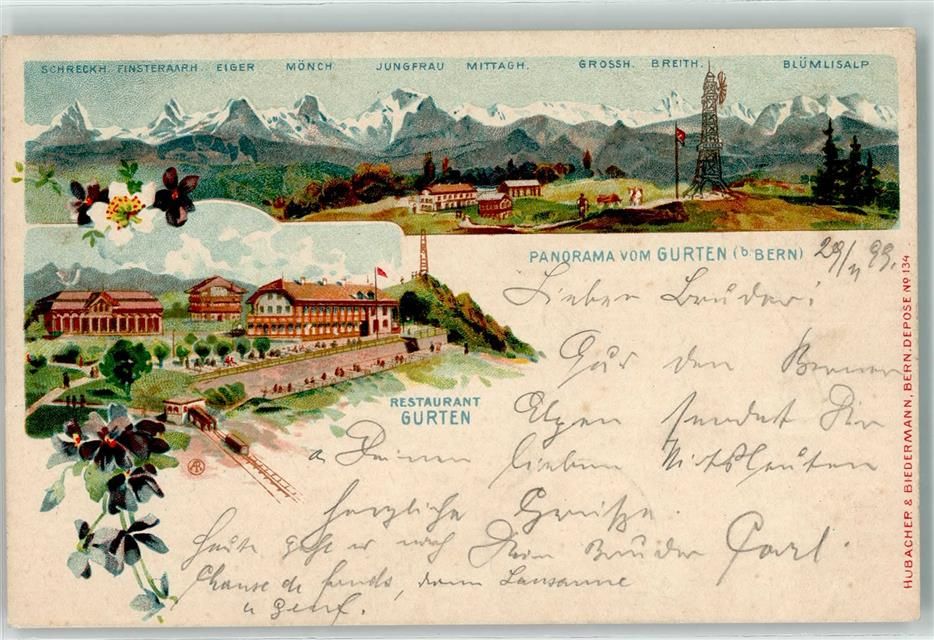 SCHRECKH. FINSTERAARH. EIGER MÖNCH JUNGFRAU MITTAGH. GROSSH. BREITH. BLÜMLISALP
PANORAMA VOM GURTEN (b. BERN)
29/ 99.
Lieber Bruder!
Aus den Berner
Alpen sendet Dir
u Deinen lieben
herzliche Grüße.
Dein Bruder Carl.
Heute geht es nach
Chaux de fonds, dann Lausanne
u Genf.
RESTAURANT
GURTEN
AR
HUBACHER & BIEDERMANN, BERN. DEPOSE No 134